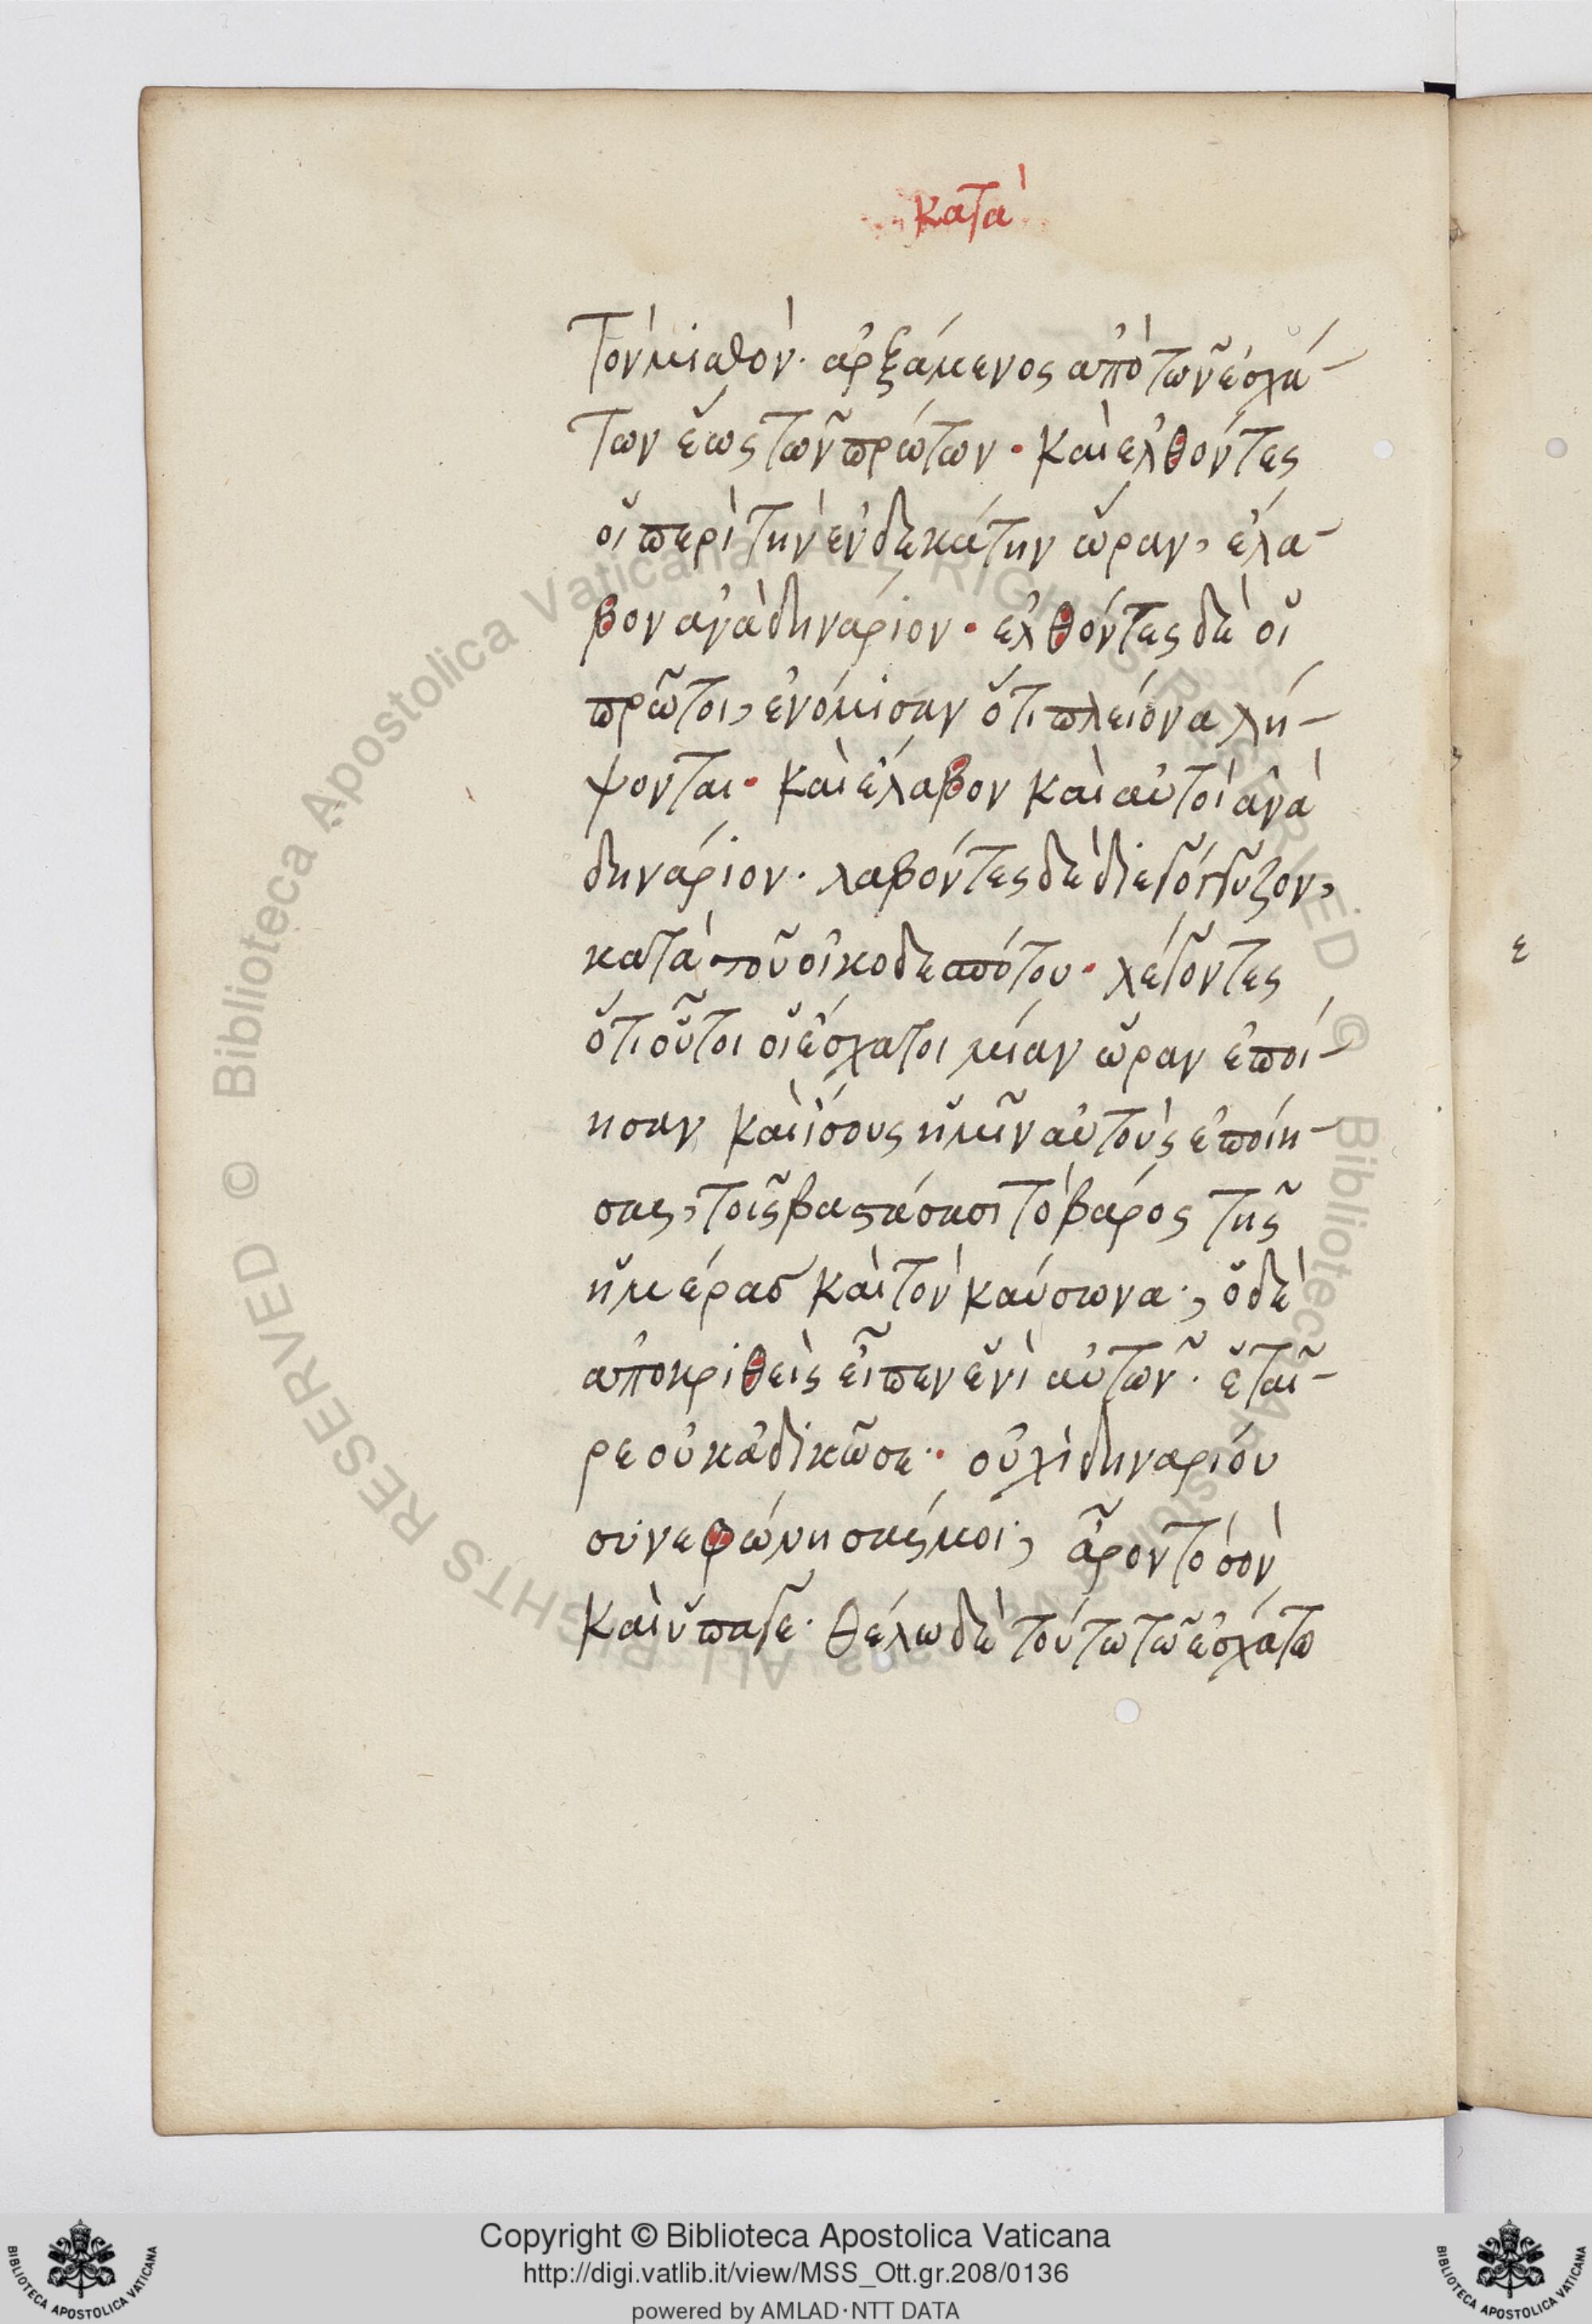 κατὰ
τὸν μισθὸν· ἀρξάμενος ἀπὸ τῶν ἐσχά-
των ἕως τῶν πρώτων· καὶ ἐλθόντες
οἱ περὶ τὴν ἑνδεκάτην ὥραν, ἔλα-
βον ἀνὰ δηνάριον· ἐλθόντες δὲ οἱ
πρῶτοι, ἐνόμισαν ὅτι πλείονα λή-
ψονται· καὶ ἔλαβον καὶ αὐτοὶ ἀνὰ
δηνάριον· λαβόντες δὲ διεγόγγυζον,
κατὰ τοῦ οἰκοδεσπότου· λέγοντες
ὅτι οὗτοι οἱ ἔσχατοι μίαν ὥραν ἐποί-
ησαν καὶ ἴσους ἡμῖν αὐτοὺς ἐποίη-
σας, τοῖς βαστάσασι τὸ βάρος τῆς
ἡμέρας καὶ τὸν καύσωνα·, ὁ δὲ
ἀποκριθεὶς εἶπεν ἑνὶ αὐτῶν· ἑταῖ-
ρε οὐκ ἀδικῶ σε·· οὐχὶ δηναρίου
συνεφώνησάς μοι; ἆρον τὸ σὸν
καὶ ὕπαγε· θέλω δὲ τούτω τῶ ἐσχάτω
ε
Biblioteca Apostolica Vaticana ALL RIGHTS RESERVED ©
Biblioteca Apostolica Vaticana ALL RIGHTS RESERVED ©
Copyright © Biblioteca Apostolica Vaticana
http://digi.vatlib.it/view/MSS_Ott.gr.208/0136
powered by AMLAD·NTT DATA
BIBLIOTECA APOSTOLICA VATICANA
BIBLIOTECA APOSTOLICA VATICANA